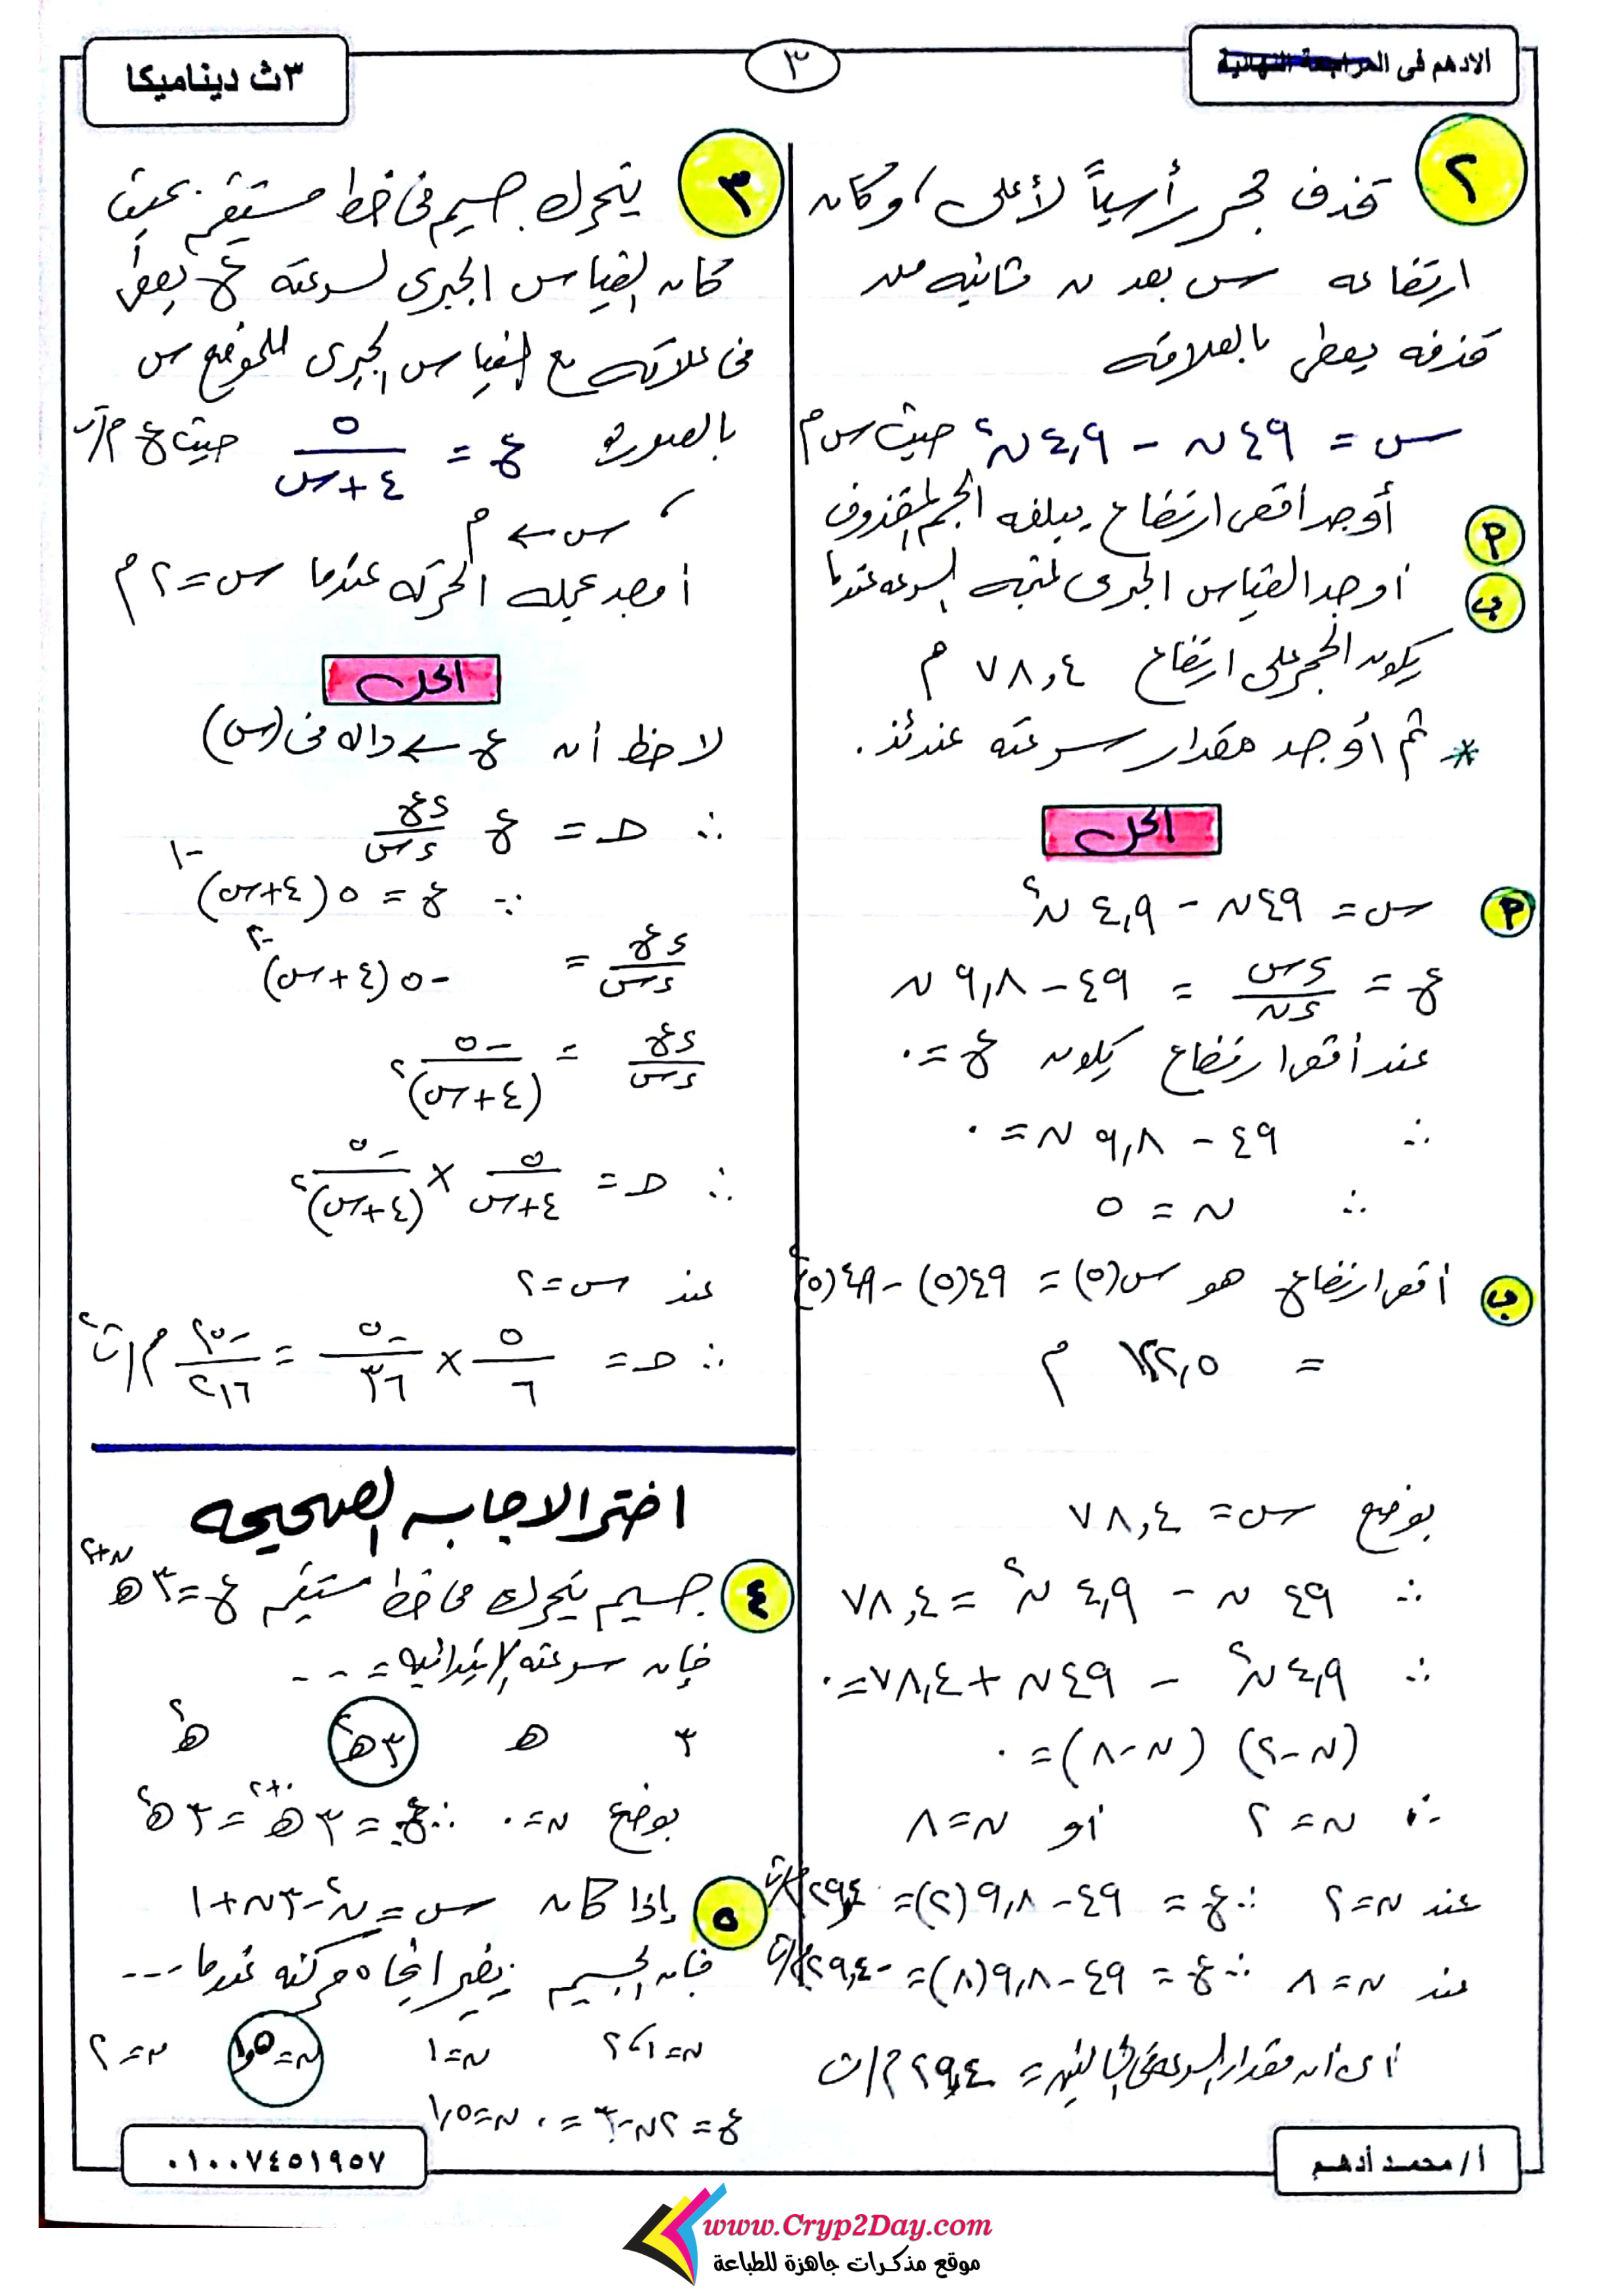 الادهم فى المراجعة النهائية
٣
٣ث ديناميكا
٢ قذف حجر رأسياً لأعلى، وكان
ارتفاعه س بعد ن ثانيه من
قذفه يعطى بالعلاقه
س = ٤٩ن - ٤,٩ن٢ حيث س م
أ أوجد اقصى ارتفاع يبلغه الجسم المقذوف
ب أوجد القياس الجبرى لمتجه السرعه عندما
يكون الحجر على ارتفاع ٧٨,٤ م
* ثم أوجد مقدار سرعته عندئذ.
الحل
أ س = ٤٩ن - ٤,٩ن٢
ع = ءس/ءن = ٤٩ - ٩,٨ن
عند أقصى ارتفاع يكون ع = ٠
∴ ٤٩ - ٩,٨ن = ٠
∴ ن = ٥
ب أقصى ارتفاع هو س(٥) = ٤٩(٥) - ٤,٩(٥)٢
= ١٢٢,٥ م
بوضع س = ٧٨,٤
∴ ٤٩ن - ٤,٩ن٢ = ٧٨,٤
∴ ٤,٩ن٢ - ٤٩ن + ٧٨,٤ = ٠
(ن-٢)(ن-٨) = ٠
∴ ن = ٢ أو ن = ٨
عند ن = ٢ ∴ ع = ٤٩ - ٩,٨(٢) = ٢٩,٤ م/ث
عند ن = ٨ ∴ ع = ٤٩ - ٩,٨(٨) = -٢٩,٤ م/ث
أى أن مقدار السرعه فى الحالتين = ٢٩,٤ م/ث
٣ يتحرك جسيم فى خط مستقيم بحيث
كان القياس الجبرى لسرعته ع يعطى
فى علاقته مع القياس الجبرى للموضع س
بالصورة ع = ٥/(٤+س) حيث ع م/ث
، س ← م
أوجد عجله الحركه عندما س = ٢ م
الحل
لاحظ أن ع ← داله فى (س)
∴ حـ = ع ءع/ءس
∵ ع = ٥(٤+س)-١
ءع/ءس = -٥(٤+س)-٢
ءع/ءس = -٥/(٤+س)٢
∴ حـ = ٥/(٤+س) × -٥/(٤+س)٢
عند س = ٢
∴ حـ = ٥/٦ × -٥/٣٦ = -٢٥/٢١٦ م/ث٢
اختر الاجابه الصحيحه
٤ جسيم يتحرك فى خط مستقيم ع = ٣هـ ن+٢
فإن سرعته الإبتدائيه = - - -
٣ هـ ٣هـ٢ هـ٢
بوضع ن = ٠ ∴ ع. = ٣هـ ٠+٢ = ٣هـ٢
٥ إذا كان س = ن٢ - ٣ن + ١
فإن الجسيم يغير اتجاه حركته عندما ----
ن = ١، ٢ ن = ١ ن = ١,٥ ن = ٢
ع = ٢ن - ٣ = ٠ ن = ١,٥
أ/ محمد أدهم
٠١٠٠٧٤٥١٩٥٧
www.Cryp2Day.com
موقع مذكرات جاهزة للطباعة